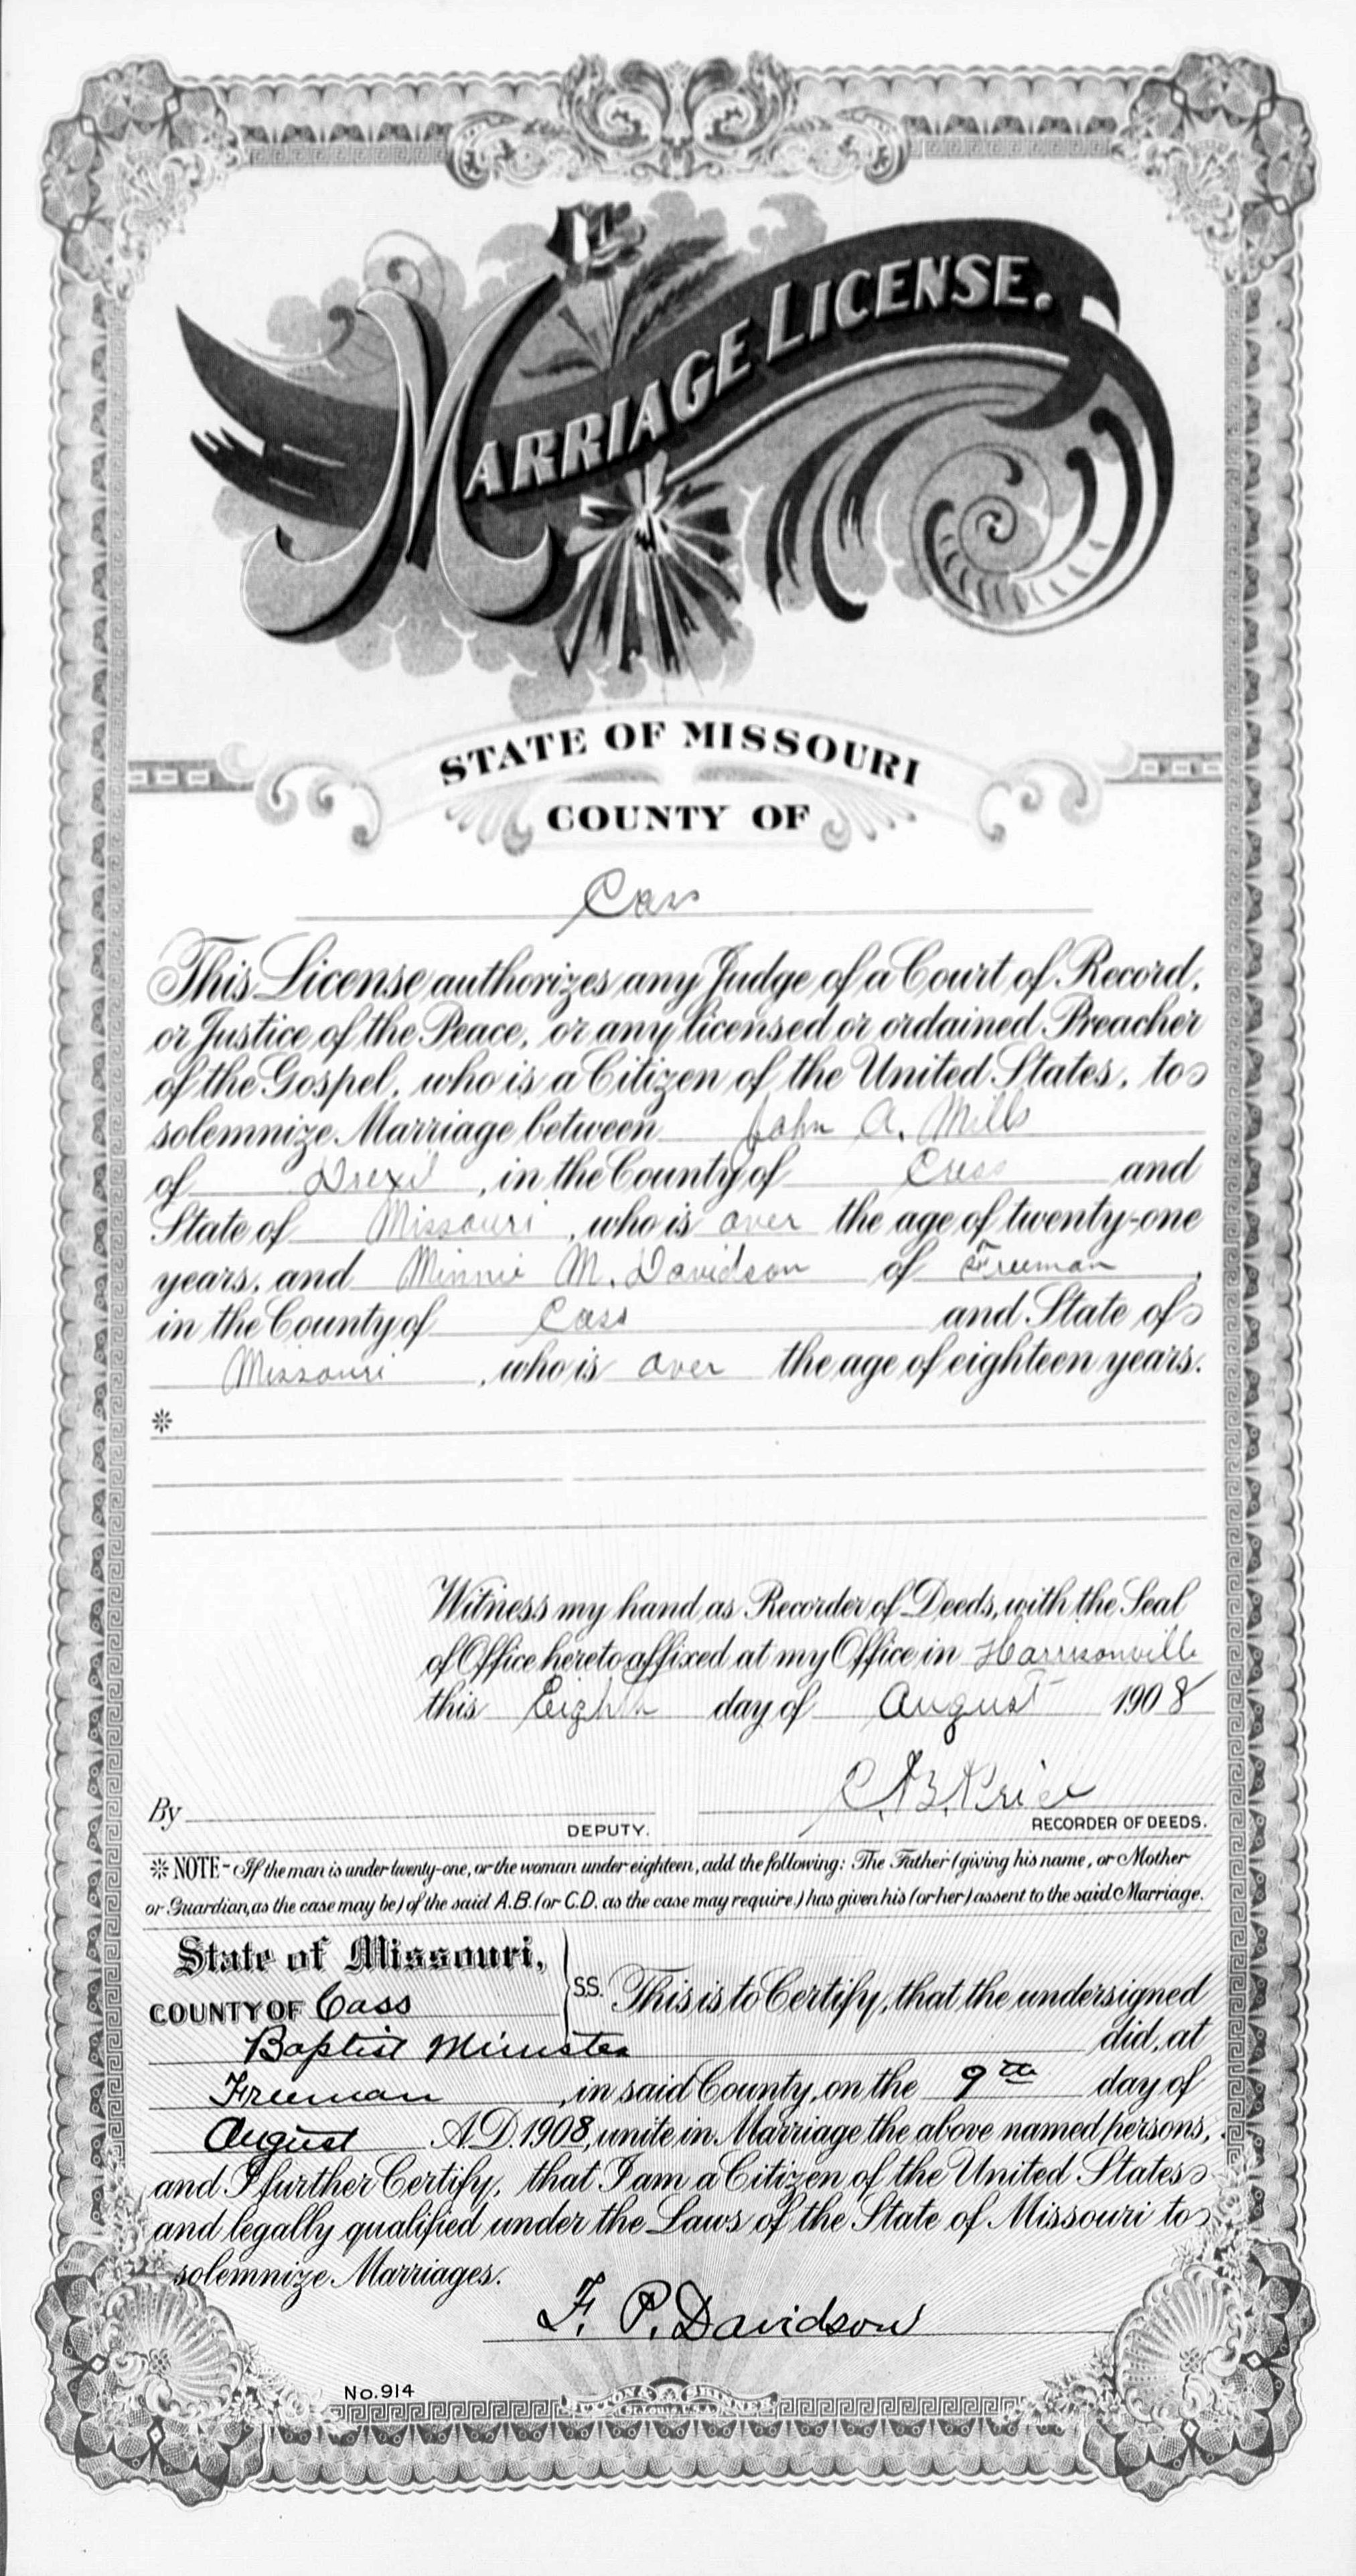 MARRIAGE LICENSE.
STATE OF MISSOURI
COUNTY OF
Cass
This License authorizes any Judge of a Court of Record,
or Justice of the Peace, or any licensed or ordained Preacher
of the Gospel, who is a Citizen of the United States, to
solemnize Marriage between John A. Mills
of Drexil, in the County of Cass and
State of Missouri, who is over the age of twenty-one
years, and Minnie M. Davidson of Freeman,
in the County of Cass and State of
Missouri, who is over the age of eighteen years.
*
Witness my hand as Recorder of Deeds, with the Seal
of Office hereto affixed at my Office in Harrisonville
this Eighth day of August 1908
By
DEPUTY.
C. B. Price
RECORDER OF DEEDS.
* NOTE - If the man is under twenty-one, or the woman under eighteen, add the following: The Father (giving his name, or Mother
or Guardian, as the case may be) of the said A.B. (or C.D. as the case may require.) has given his (or her) assent to the said Marriage.
State of Missouri,
COUNTY OF Cass
SS. This is to Certify, that the undersigned
Baptist Minister did, at
Freeman, in said County, on the 9th day of
August A.D. 1908, unite in Marriage the above named persons,
and I further Certify, that I am a Citizen of the United States
and legally qualified under the Laws of the State of Missouri to
solemnize Marriages.
F. P. Davidson
No. 914